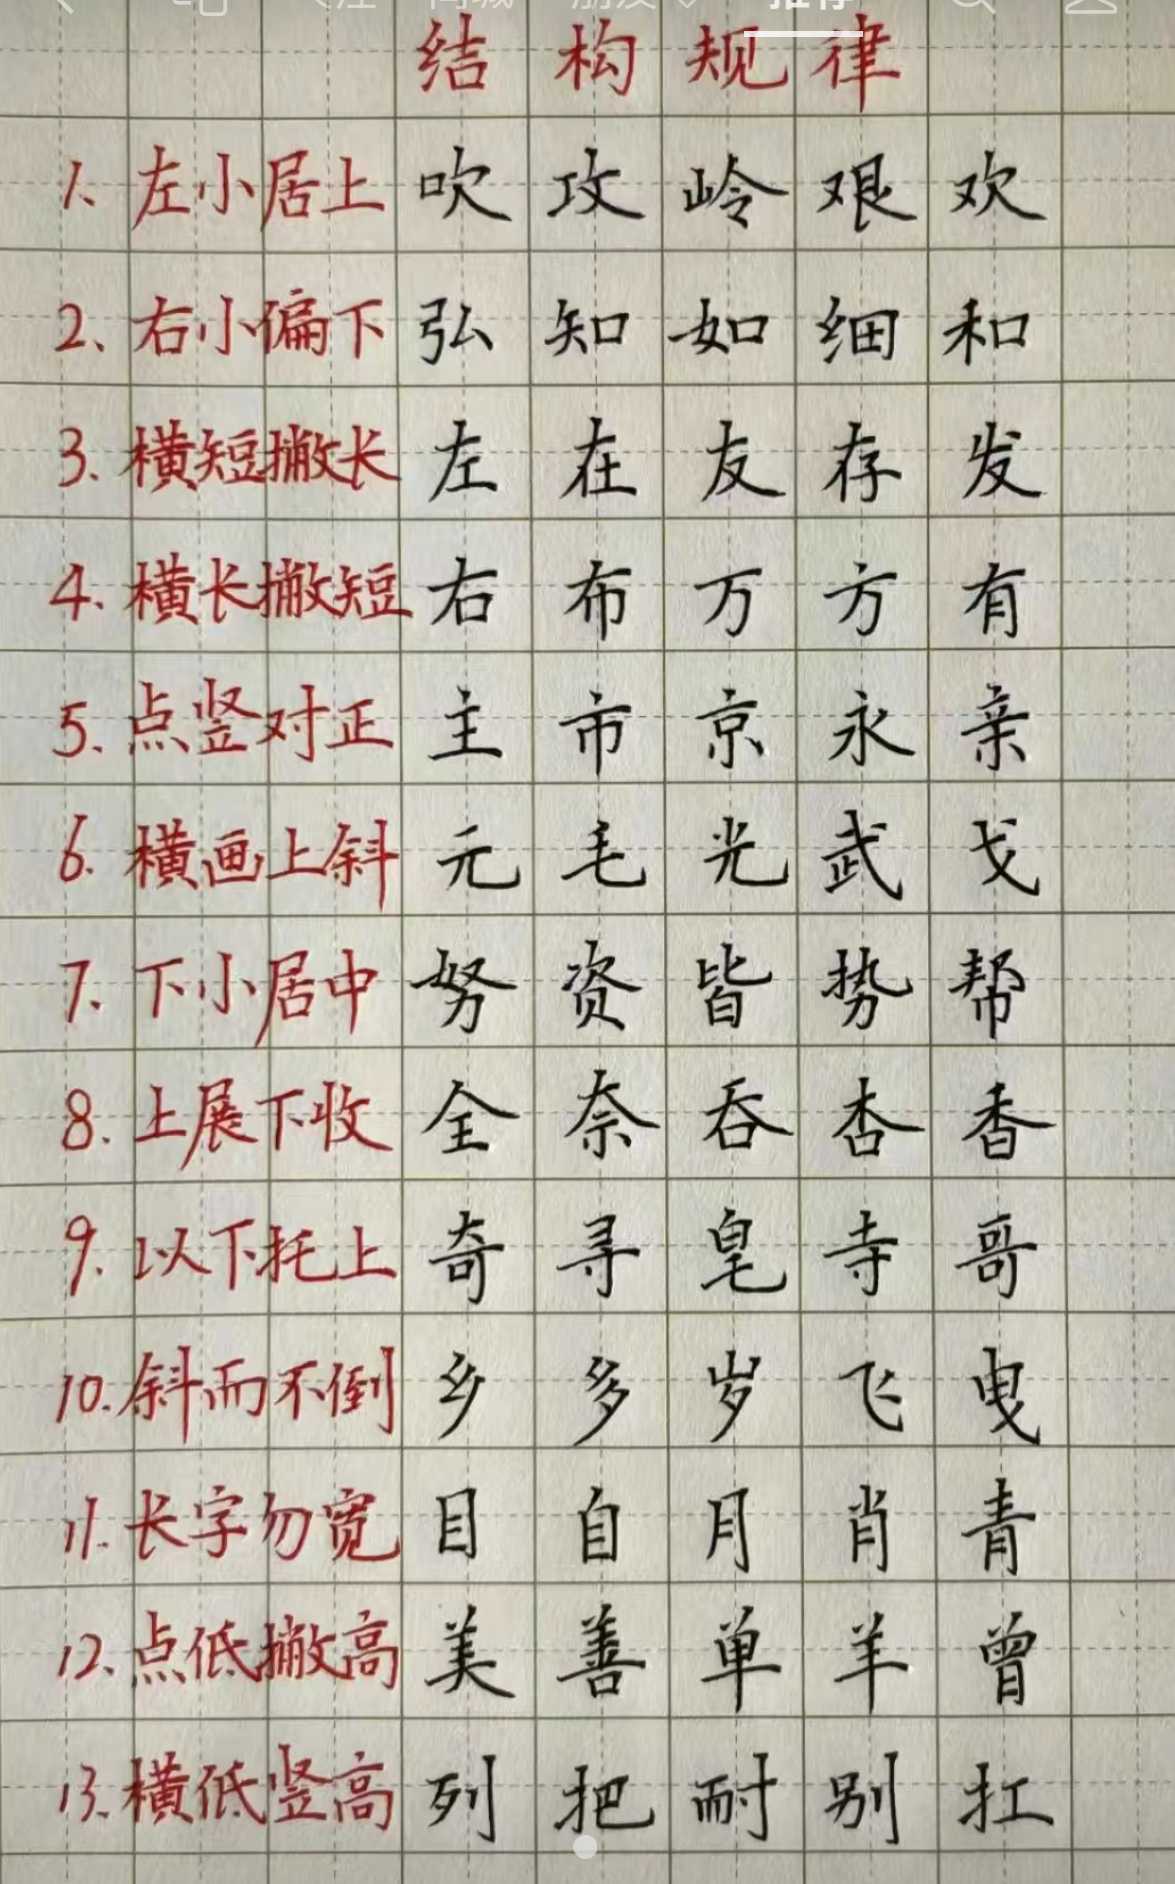 结构规律
1. 左小居上 吹 攻 岭 艰 欢
2. 右小偏下 弘 知 如 细 和
3. 横短撇长 左 在 友 存 发
4. 横长撇短 右 布 万 方 有
5. 点竖对正 主 市 京 永 亲
6. 横画上斜 元 毛 光 武 戈
7. 下小居中 努 资 皆 势 帮
8. 上展下收 全 奈 吞 杏 香
9. 以下托上 奇 寻 皇 寺 哥
10. 斜而不倒 乡 多 岁 飞 曳
11. 长字勿宽 目 自 月 肖 青
12. 点低撇高 美 善 单 羊 曾
13. 横低竖高 列 把 耐 别 扛